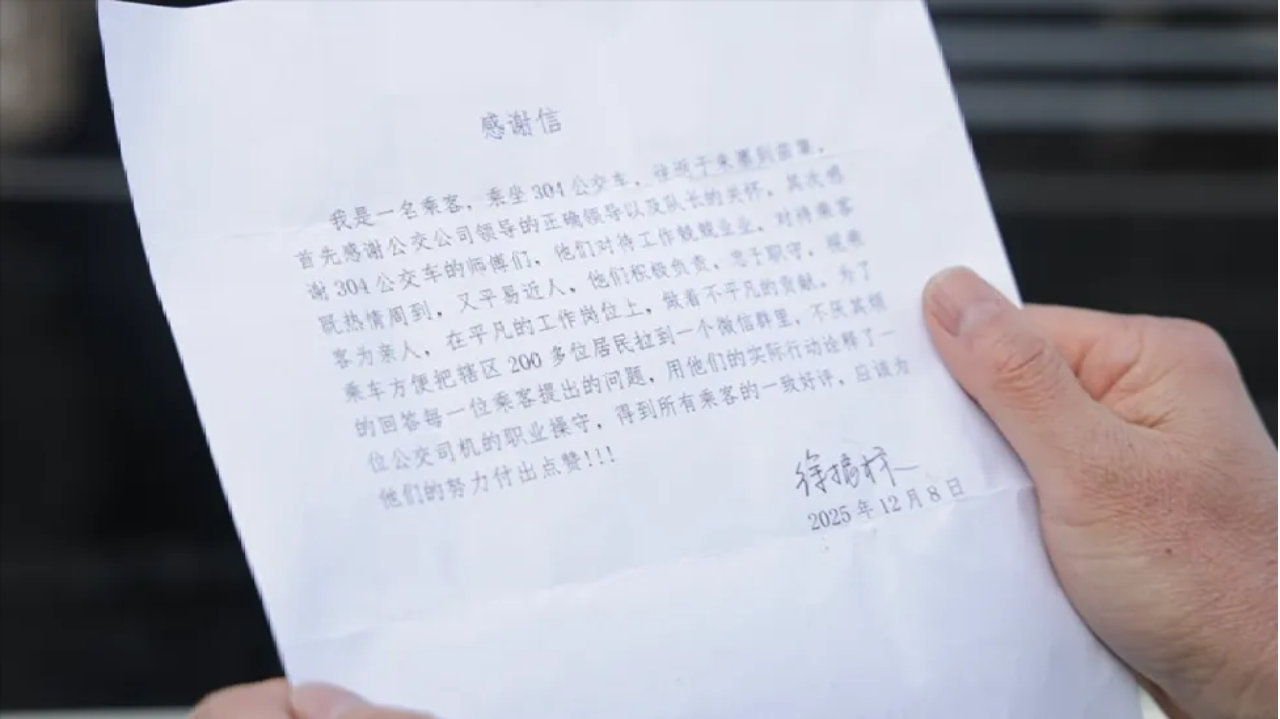 感谢信
我是一名乘客，乘坐304公交车，往返于
首先感谢公交公司领导的正确领导以及队长的关怀，其次感
谢304公交车的师傅们，他们对待工作兢兢业业，对待乘客
既热情周到，又平易近人，他们积极负责，忠于职守，视乘
客为亲人，在平凡的工作岗位上，做着不平凡的贡献。为了
乘车方便把辖区200多位居民拉到一个微信群里，不厌其烦
的回答每一位乘客提出的问题，用他们的实际行动诠释了一
位公交司机的职业操守，得到所有乘客的一致好评，应该为
他们的努力付出点赞!!!
2025年12月8日